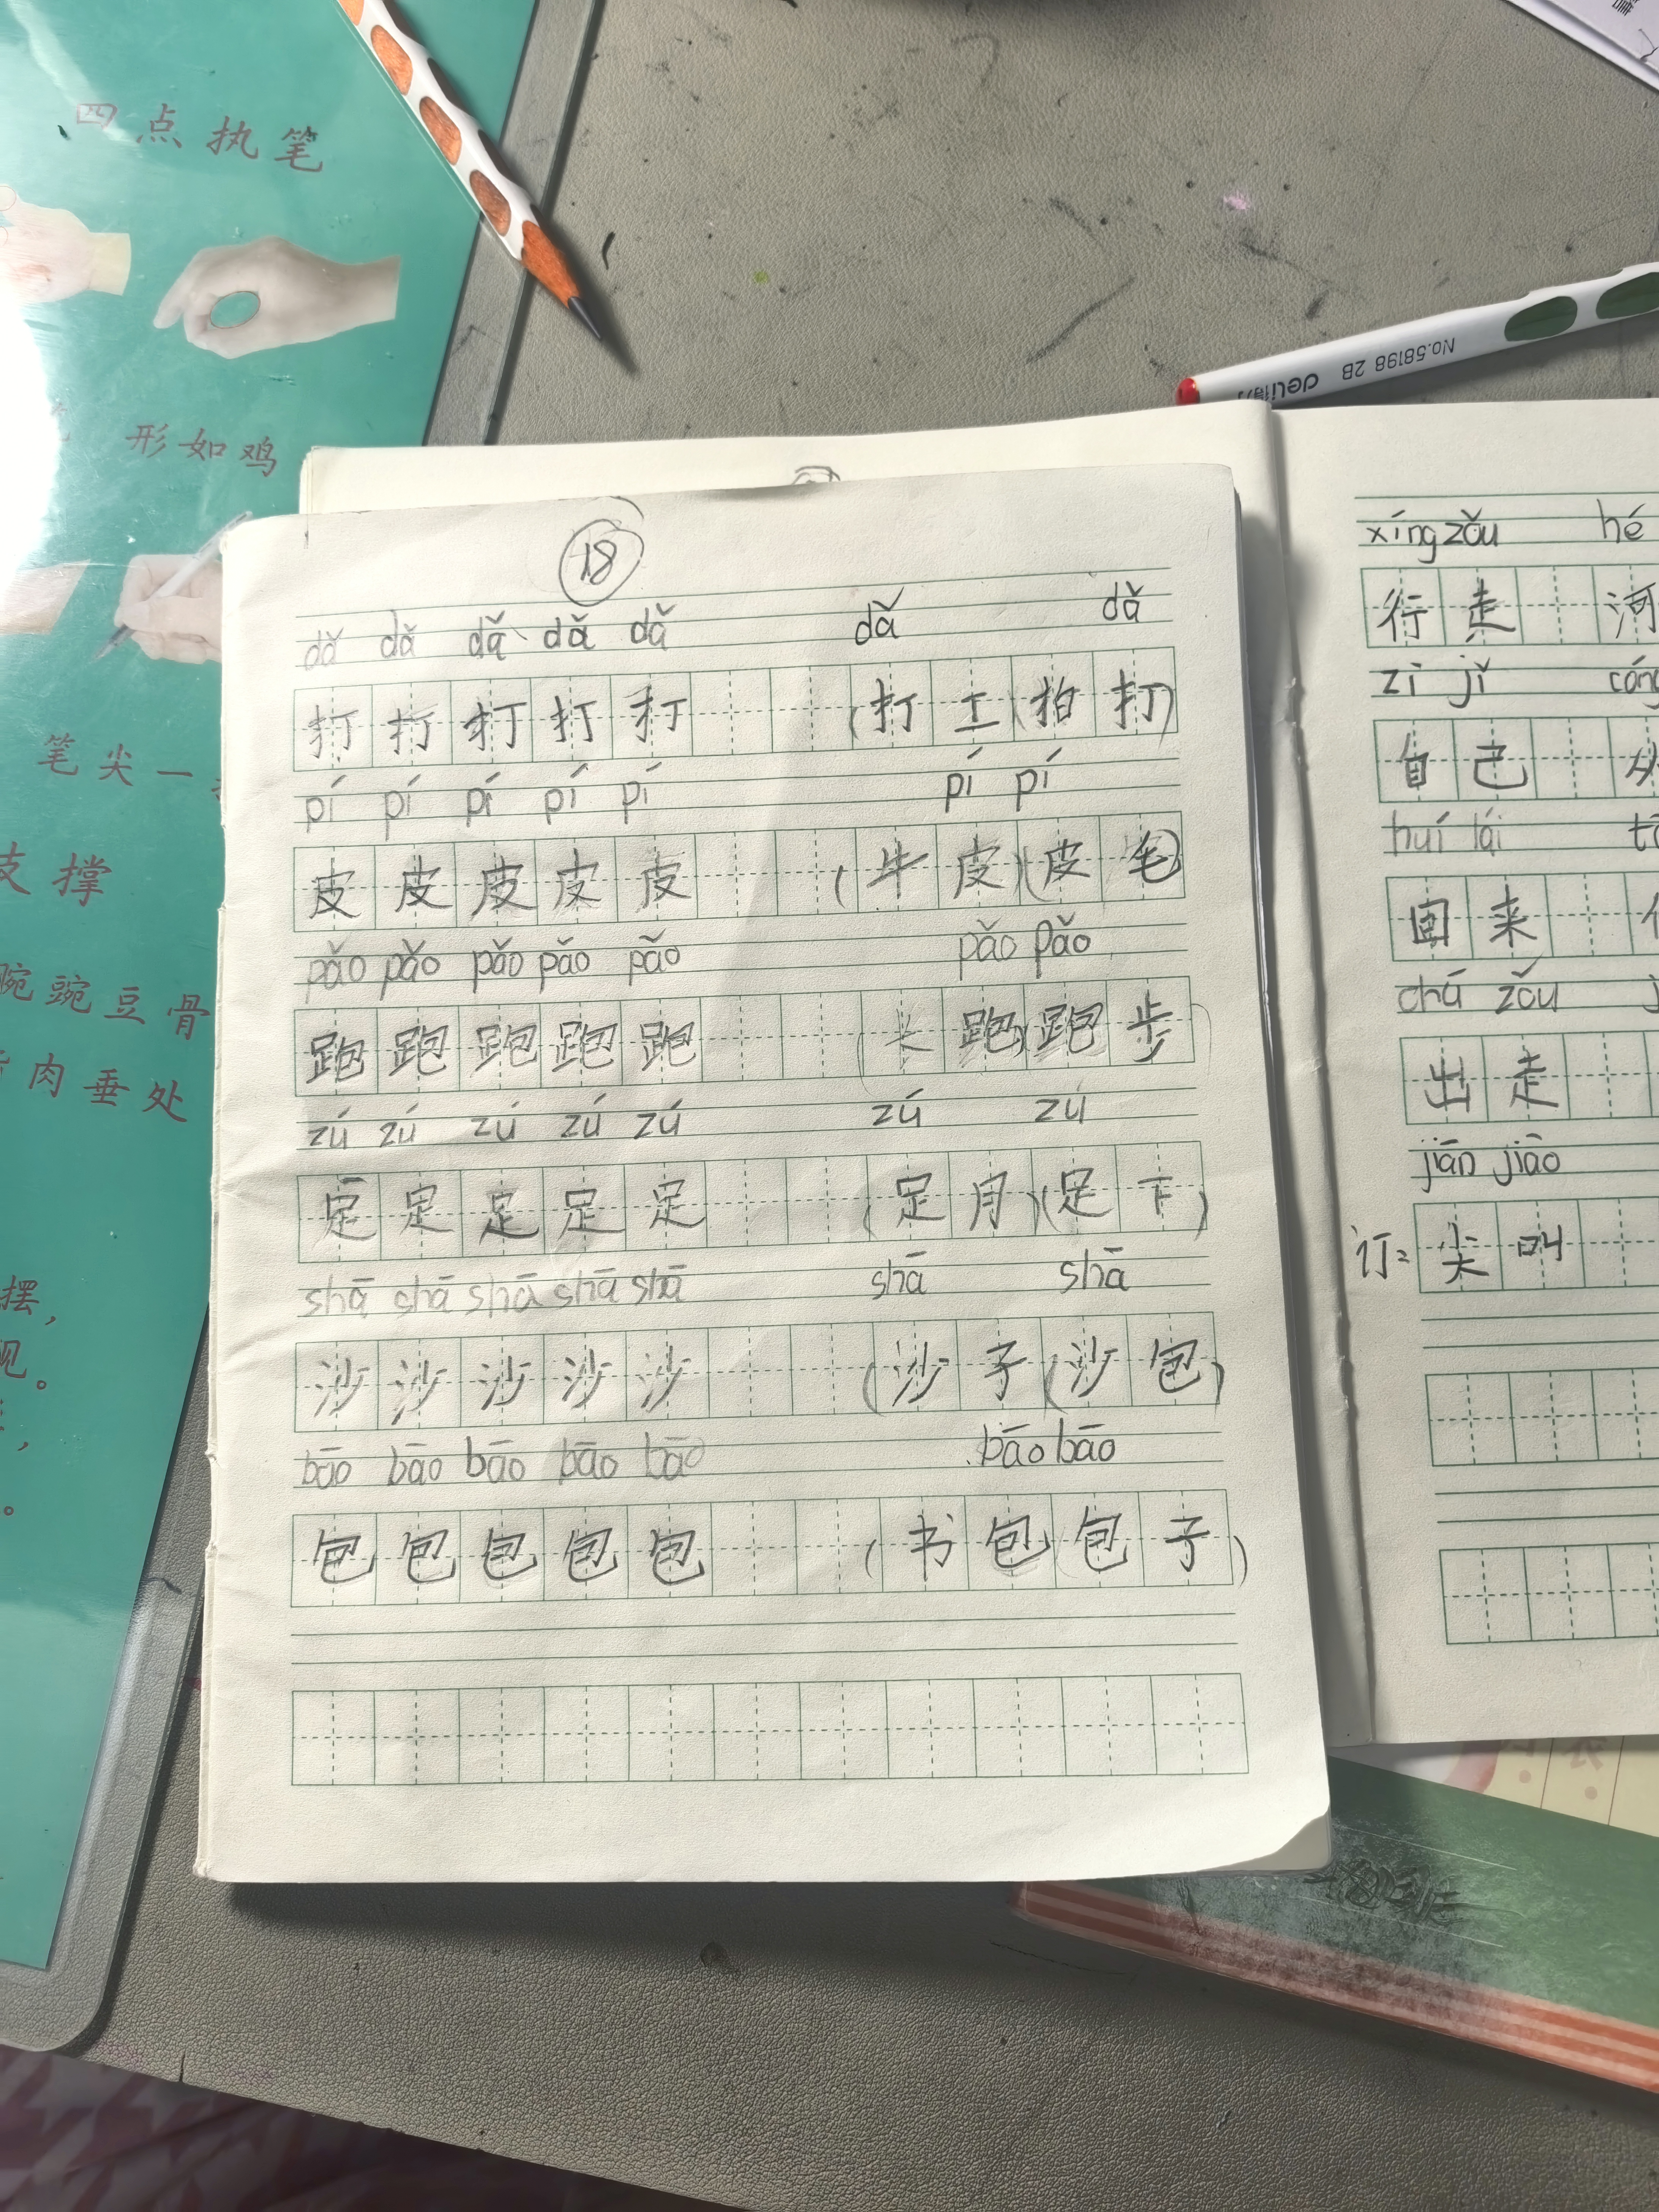 四点执笔
形如鸡
笔尖一
支撑
腕豌豆骨
肉垂处
摆，
现。
No.58198 2B
deli得力
18
dǎ dǎ dǎ dǎ dǎ dǎ dǎ
打打打打打(打工(拍打)
pí pí pí pí pí pí pí
皮皮皮皮皮(牛皮)(皮毛)
pǎo pǎo pǎo pǎo pǎo pǎo pǎo
跑跑跑跑跑(长跑)跑步)
zú zú zú zú zú zú zú
足足足足足(足月)(足下)
shā shā shā shā shā shā shā
沙沙沙沙沙(沙子(沙包)
bāo bāo bāo bāo bāo bāo bāo
包包包包包(书包)(包子)
xíng zǒu hé
行走河
zì jǐ cóng
自己从
huí lái
回来
chū zǒu
出走
jiān jiào
订：尖叫